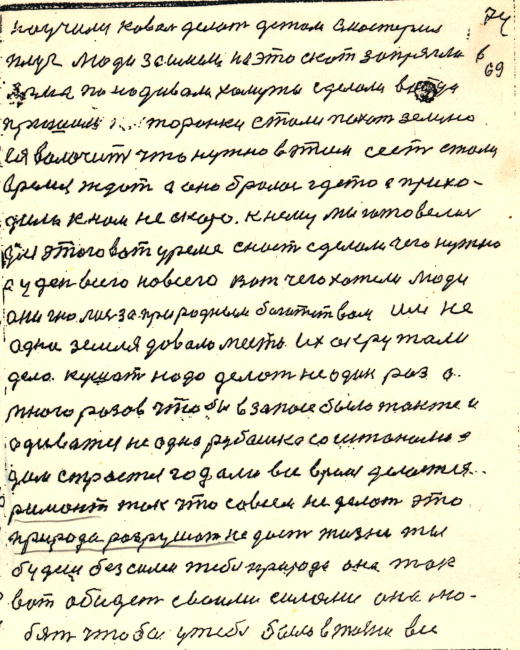 научили ковал делат детом смостерил 74
плуг люди зсимали на это скот запрягла в 69
ярма понадивали хомуты сделали
пришили торонки стали пахат землю
ея волочит что нужно втом сеет стали
время ждат а оно бралос гдето а прихо-
дила к нам не скоро. к нему ми готовелис
для этого ват уреме скаст сделали чего нужно
а уден всего новсего вот чего хотели люди
они гналис за природным богатством им не
одна земля довало месть. Их окружали
дела. кушат надо делат не один раз а
много разов чтобы в запасе было также и
адиватся не одна рубашка со штанами а
дом строется годами все время делаетея
римонт так что совсем не делат это
природа разрушат не даст жизни ты
будеш безсилен тебя природа она так
вот обидет своими силами она лю-
бят чтобы у тебя было в жизни все